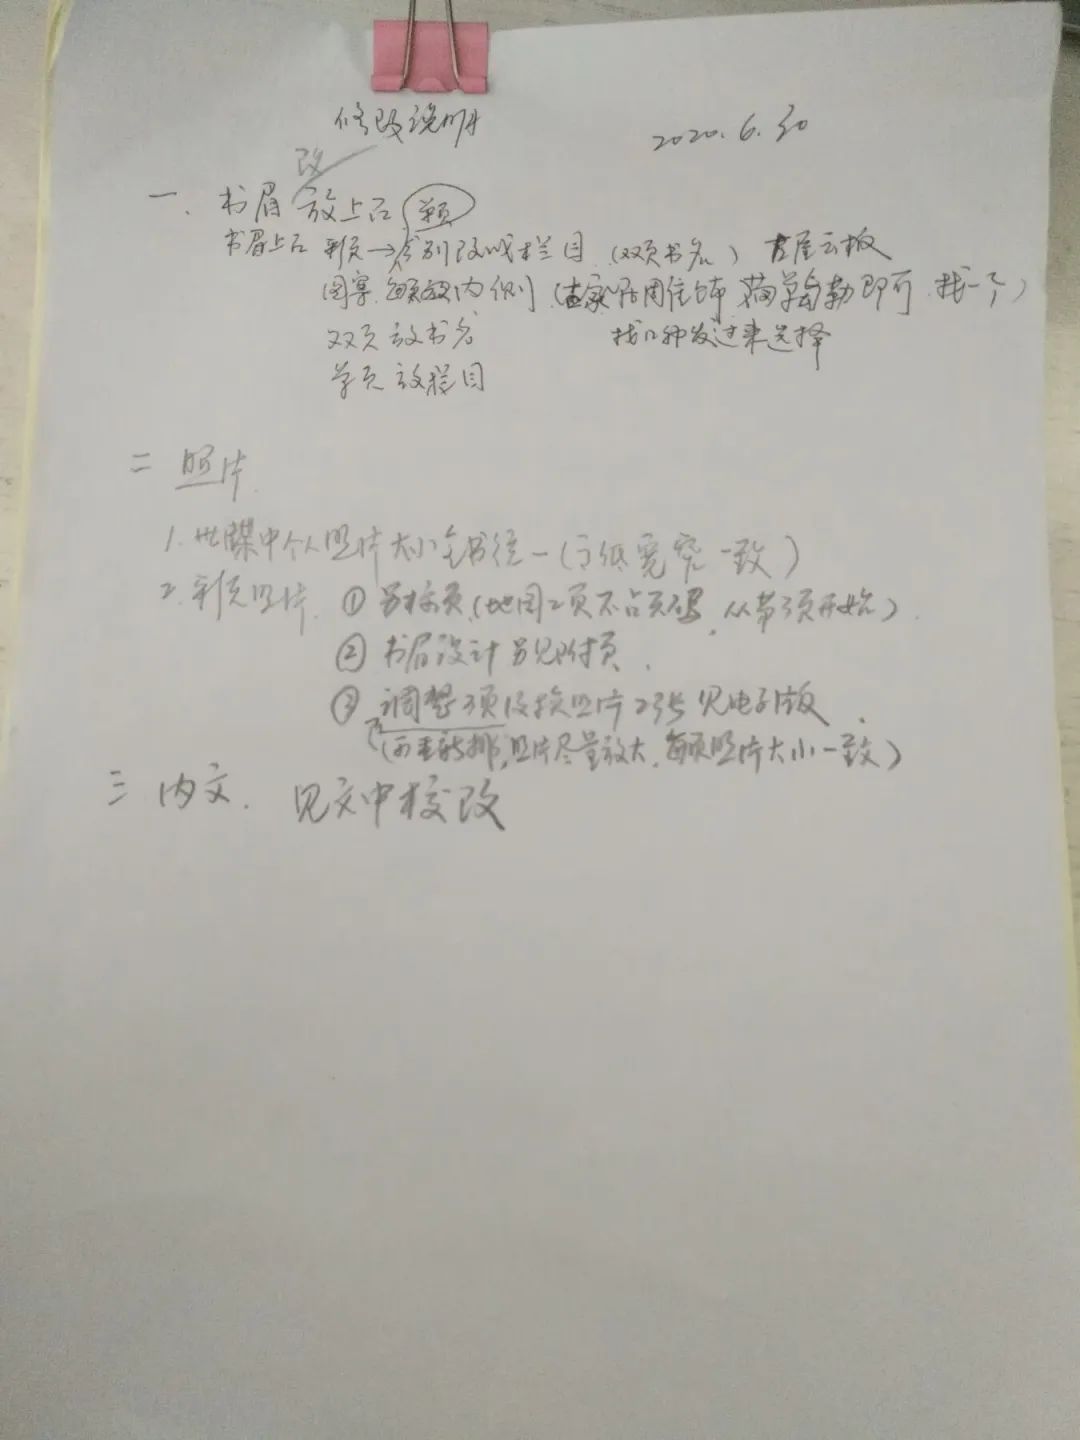 修改说明 2020.6.30
改
一、书眉 放上右 单页
书眉上右 彩页→分别改成栏目 (双页书名)
图案 放内侧 即可 找一个)
双页放书名 找几种发过来选择
单页放栏目
二 照片
1. 世牒中个人照片大小全书统一( 宽窄一致)
2. 彩页照片 ① 另标页(地图2页不占页码,从第3页开始)
② 书眉设计另见附页.
③ 调整3页及换照片2张见电子版
(而重新排,照片尽量放大,每页照片大小一致)
三 内文. 见文中校改